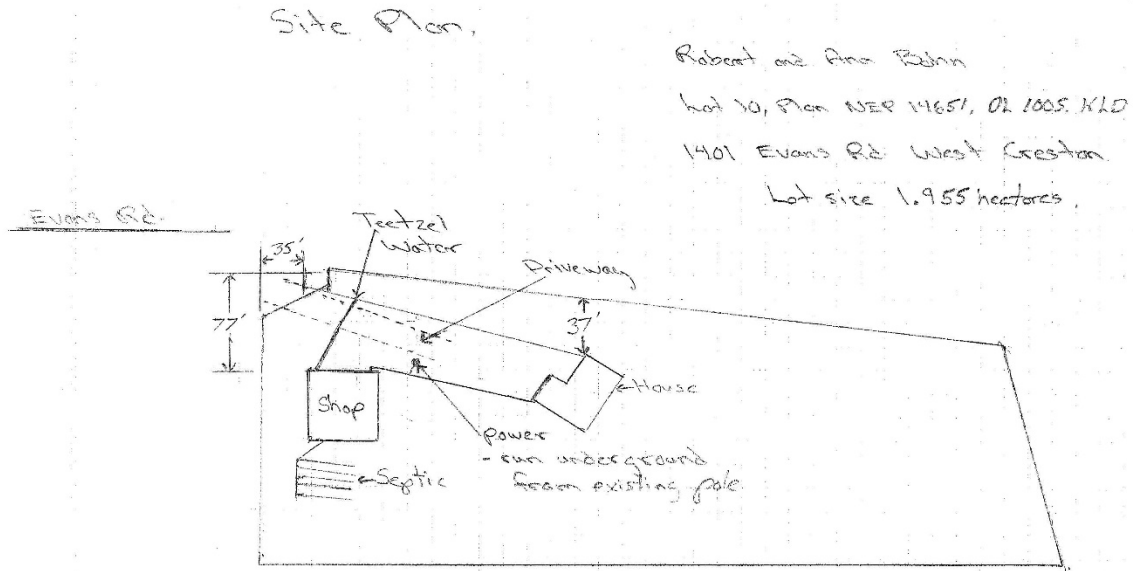 Site Plan.
Robert and Ann Bohn
Lot 10, Plan NEP 14651, DL 1005. KLD
1401 Evans Rd. West Creston
Lot size 1.955 hectares.
Evans Rd.
Teetzel
Water
35'
Driveway
77'
37'
House
Shop
Power
- run underground
from existing pole.
Septic